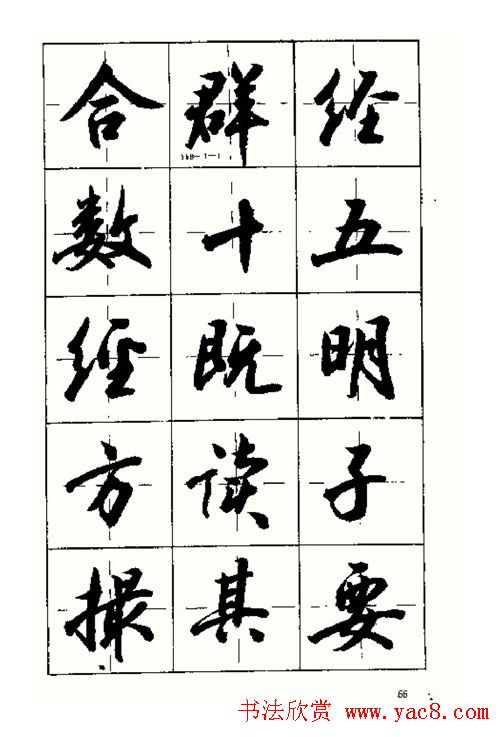 合群经
数十五
經既明
方读子
撮其要
书法欣赏 www.yac8.com